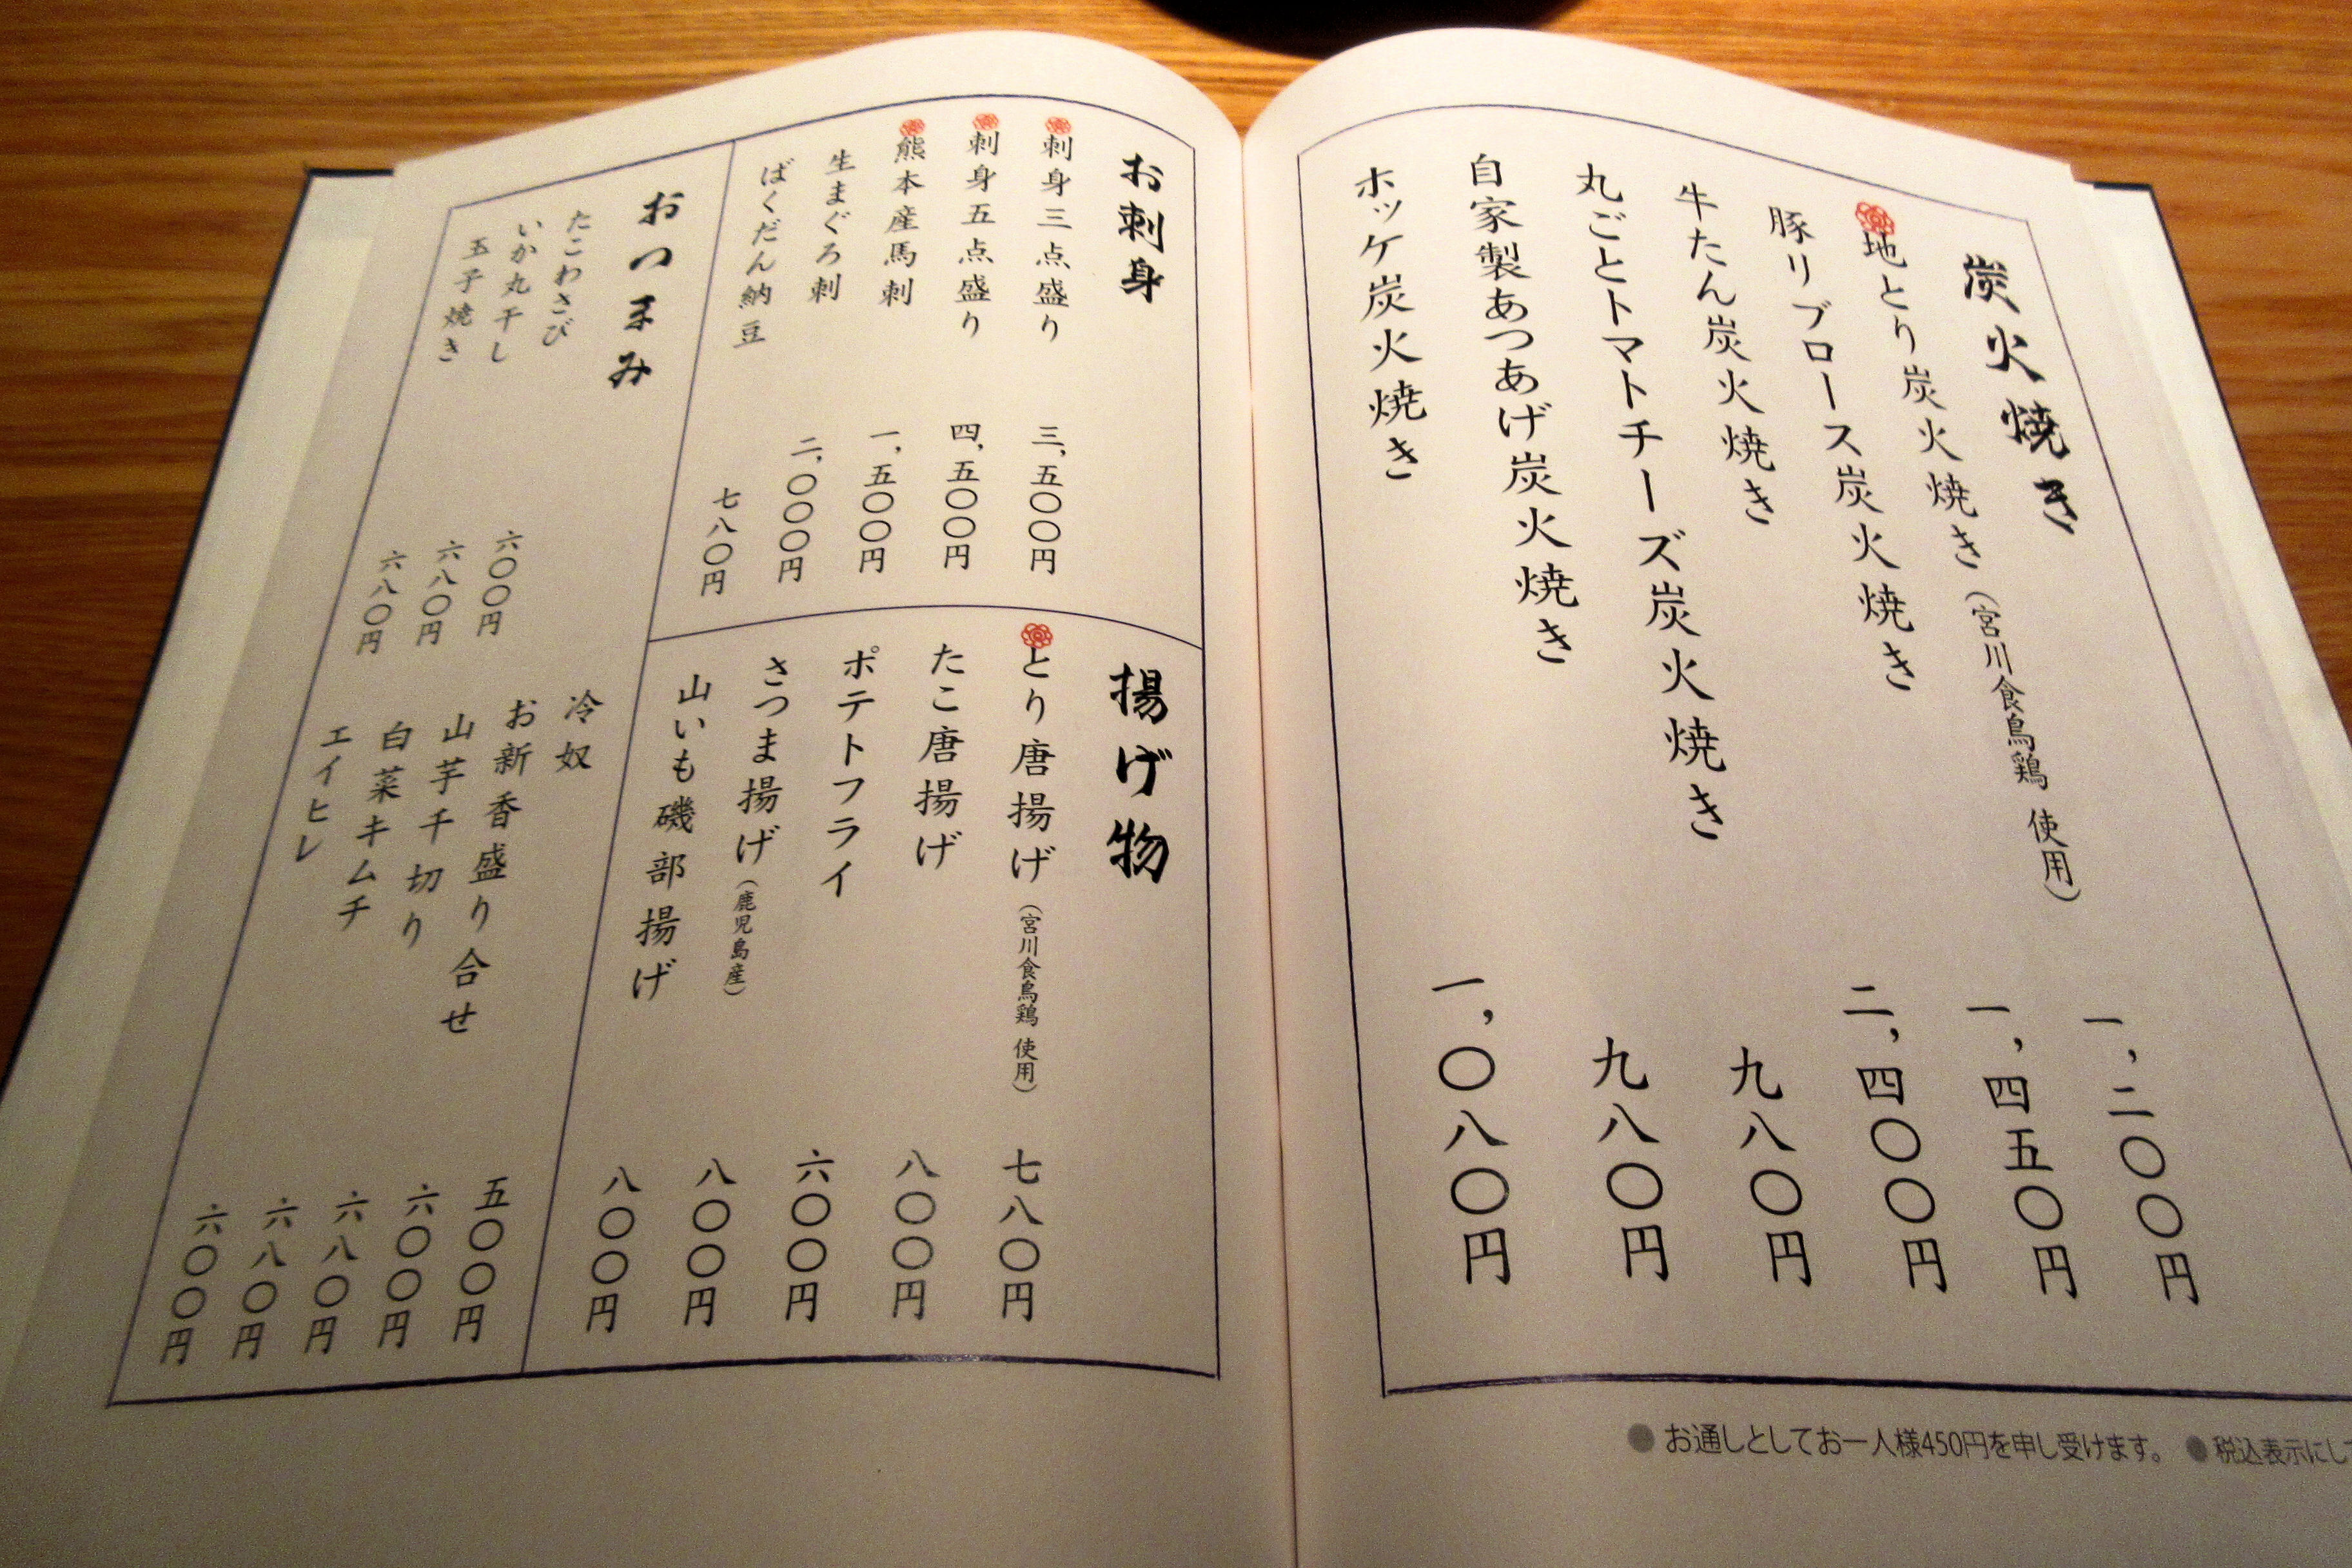 炭火焼き
地とり炭火焼き（宮川食鳥鶏 使用） 一,二〇〇円
豚リブロース炭火焼き 一,四五〇円
牛たん炭火焼き 二,四〇〇円
丸ごとトマトチーズ炭火焼き 九八〇円
自家製あつあげ炭火焼き 九八〇円
ホッケ炭火焼き 一,〇八〇円
●お通しとしてお一人様450円を申し受けます。 ●税込表示にして
お刺身
刺身三点盛り 三,五〇〇円
刺身五点盛り 四,五〇〇円
熊本産馬刺 一,五〇〇円
生まぐろ刺 二,〇〇〇円
ばくだん納豆 七八〇円
揚げ物
とり唐揚げ（宮川食鳥鶏 使用） 七八〇円
たこ唐揚げ 八〇〇円
ポテトフライ 六〇〇円
さつま揚げ（鹿児島産） 八〇〇円
山いも磯部揚げ 八〇〇円
おつまみ
たこわさび 六〇〇円
いか丸干し 六八〇円
玉子焼き 六八〇円
冷奴 五〇〇円
お新香盛り合せ 六〇〇円
山芋千切り 六八〇円
白菜キムチ 六八〇円
エイヒレ 六〇〇円